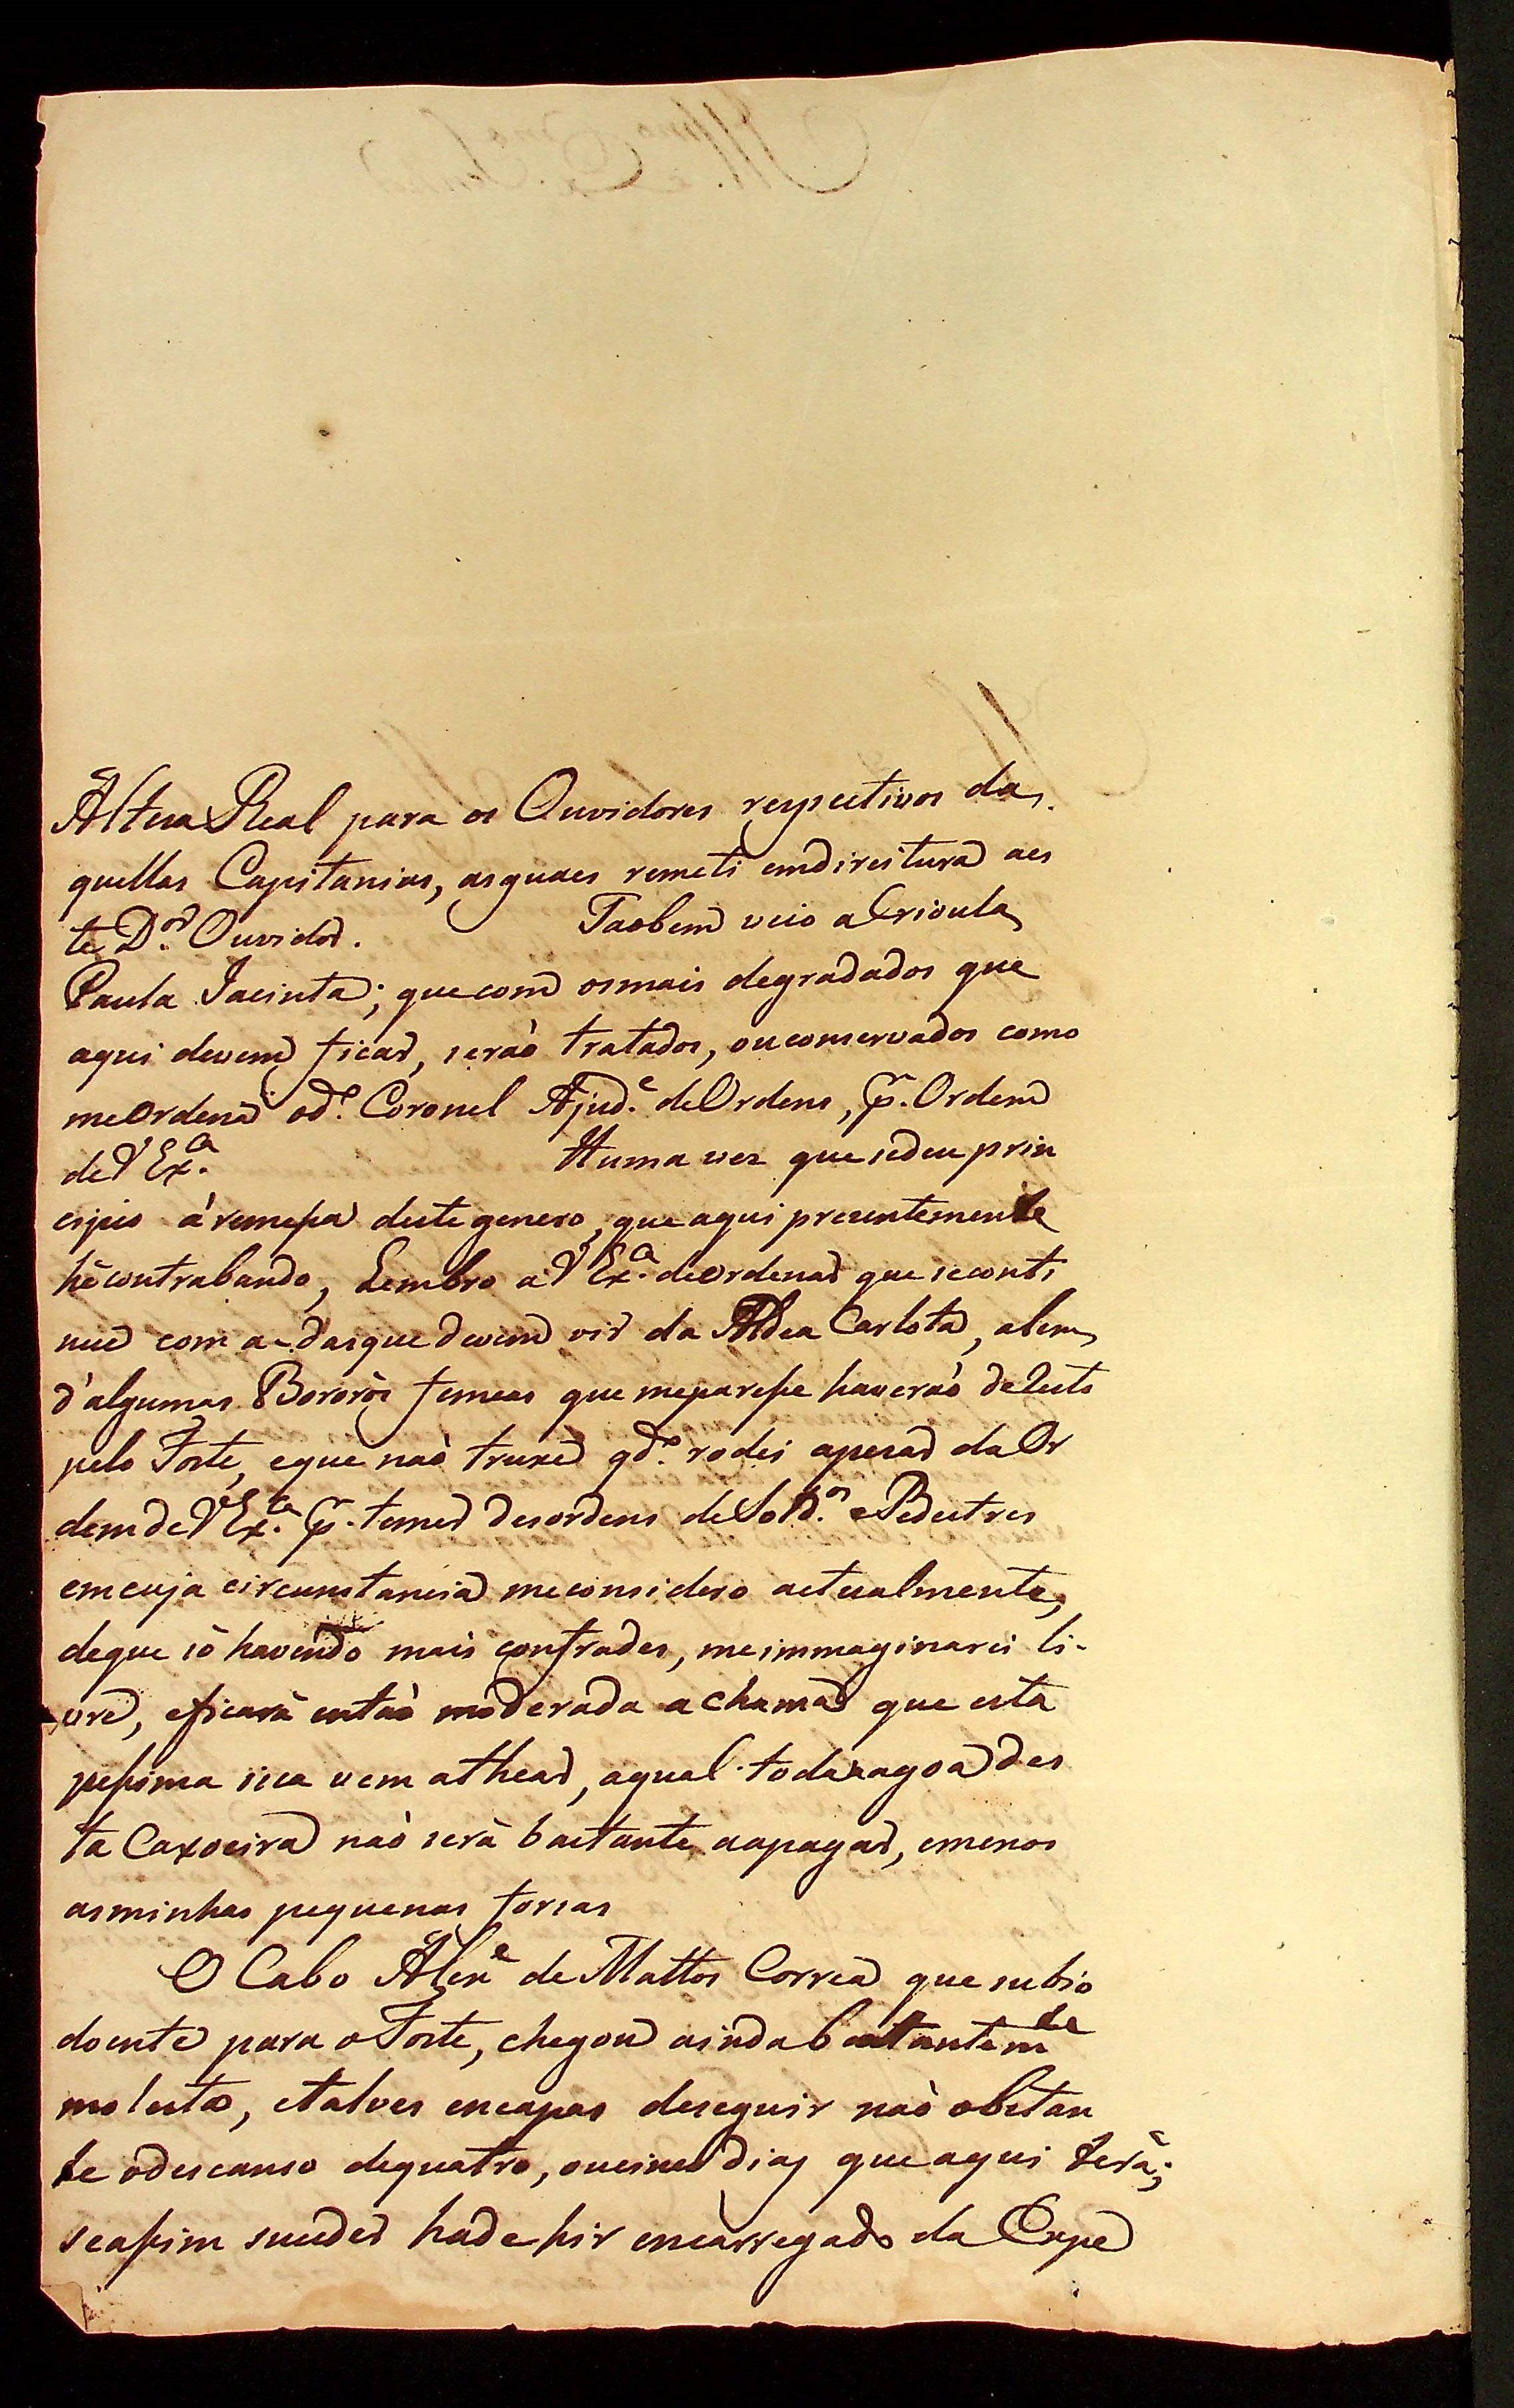 Alteza Real para os Ouvidores respectivos da
quellas Capitanias, as quaes remeti emdireitura aes
te D.or Ouvidor. Taobem veio a Crioula
Paula Jacinta; que com os mais degradados que
aqui devem ficar, serão tratados, ou conservados como
me Ordena o d.o Coronel Ajud.e de Ordens, p.r Ordem
de V Ex.a Huma vez que se deu prin
cipio á remessa deste genero, que aqui prezentemente
hé contrabando, Lembro a V Ex.a de ordenar que se conti
nue com a das que devem vir da Aldea Carlota, alem
d'algumas Bororós femeas que me paresse haverão
pelo Forte, e que não truxe q.do rodei apezar da Or
dem de V Ex.a p.r temer desordens de Sold.os e Pedestres
em cuja circunstancia me considero actualmente,
de que só havendo mais confrades, me immaginarei li-
vre, e ficará então moderada a chama que esta
pessima isca vem athear, a qual toda a agoa des
ta Caxoeira não será bastante a apagar, e menos
as minhas pequenas forsas
O Cabo Alex.e de Mattos Correa que subio
doente para o Forte, chegou ainda bastantem.te
molesto, e talves encapas de seguir não obstan
te o descanso de quatro, ou cinco dias que aqui terá;
se assim suceder hade hir encarregado da Expe